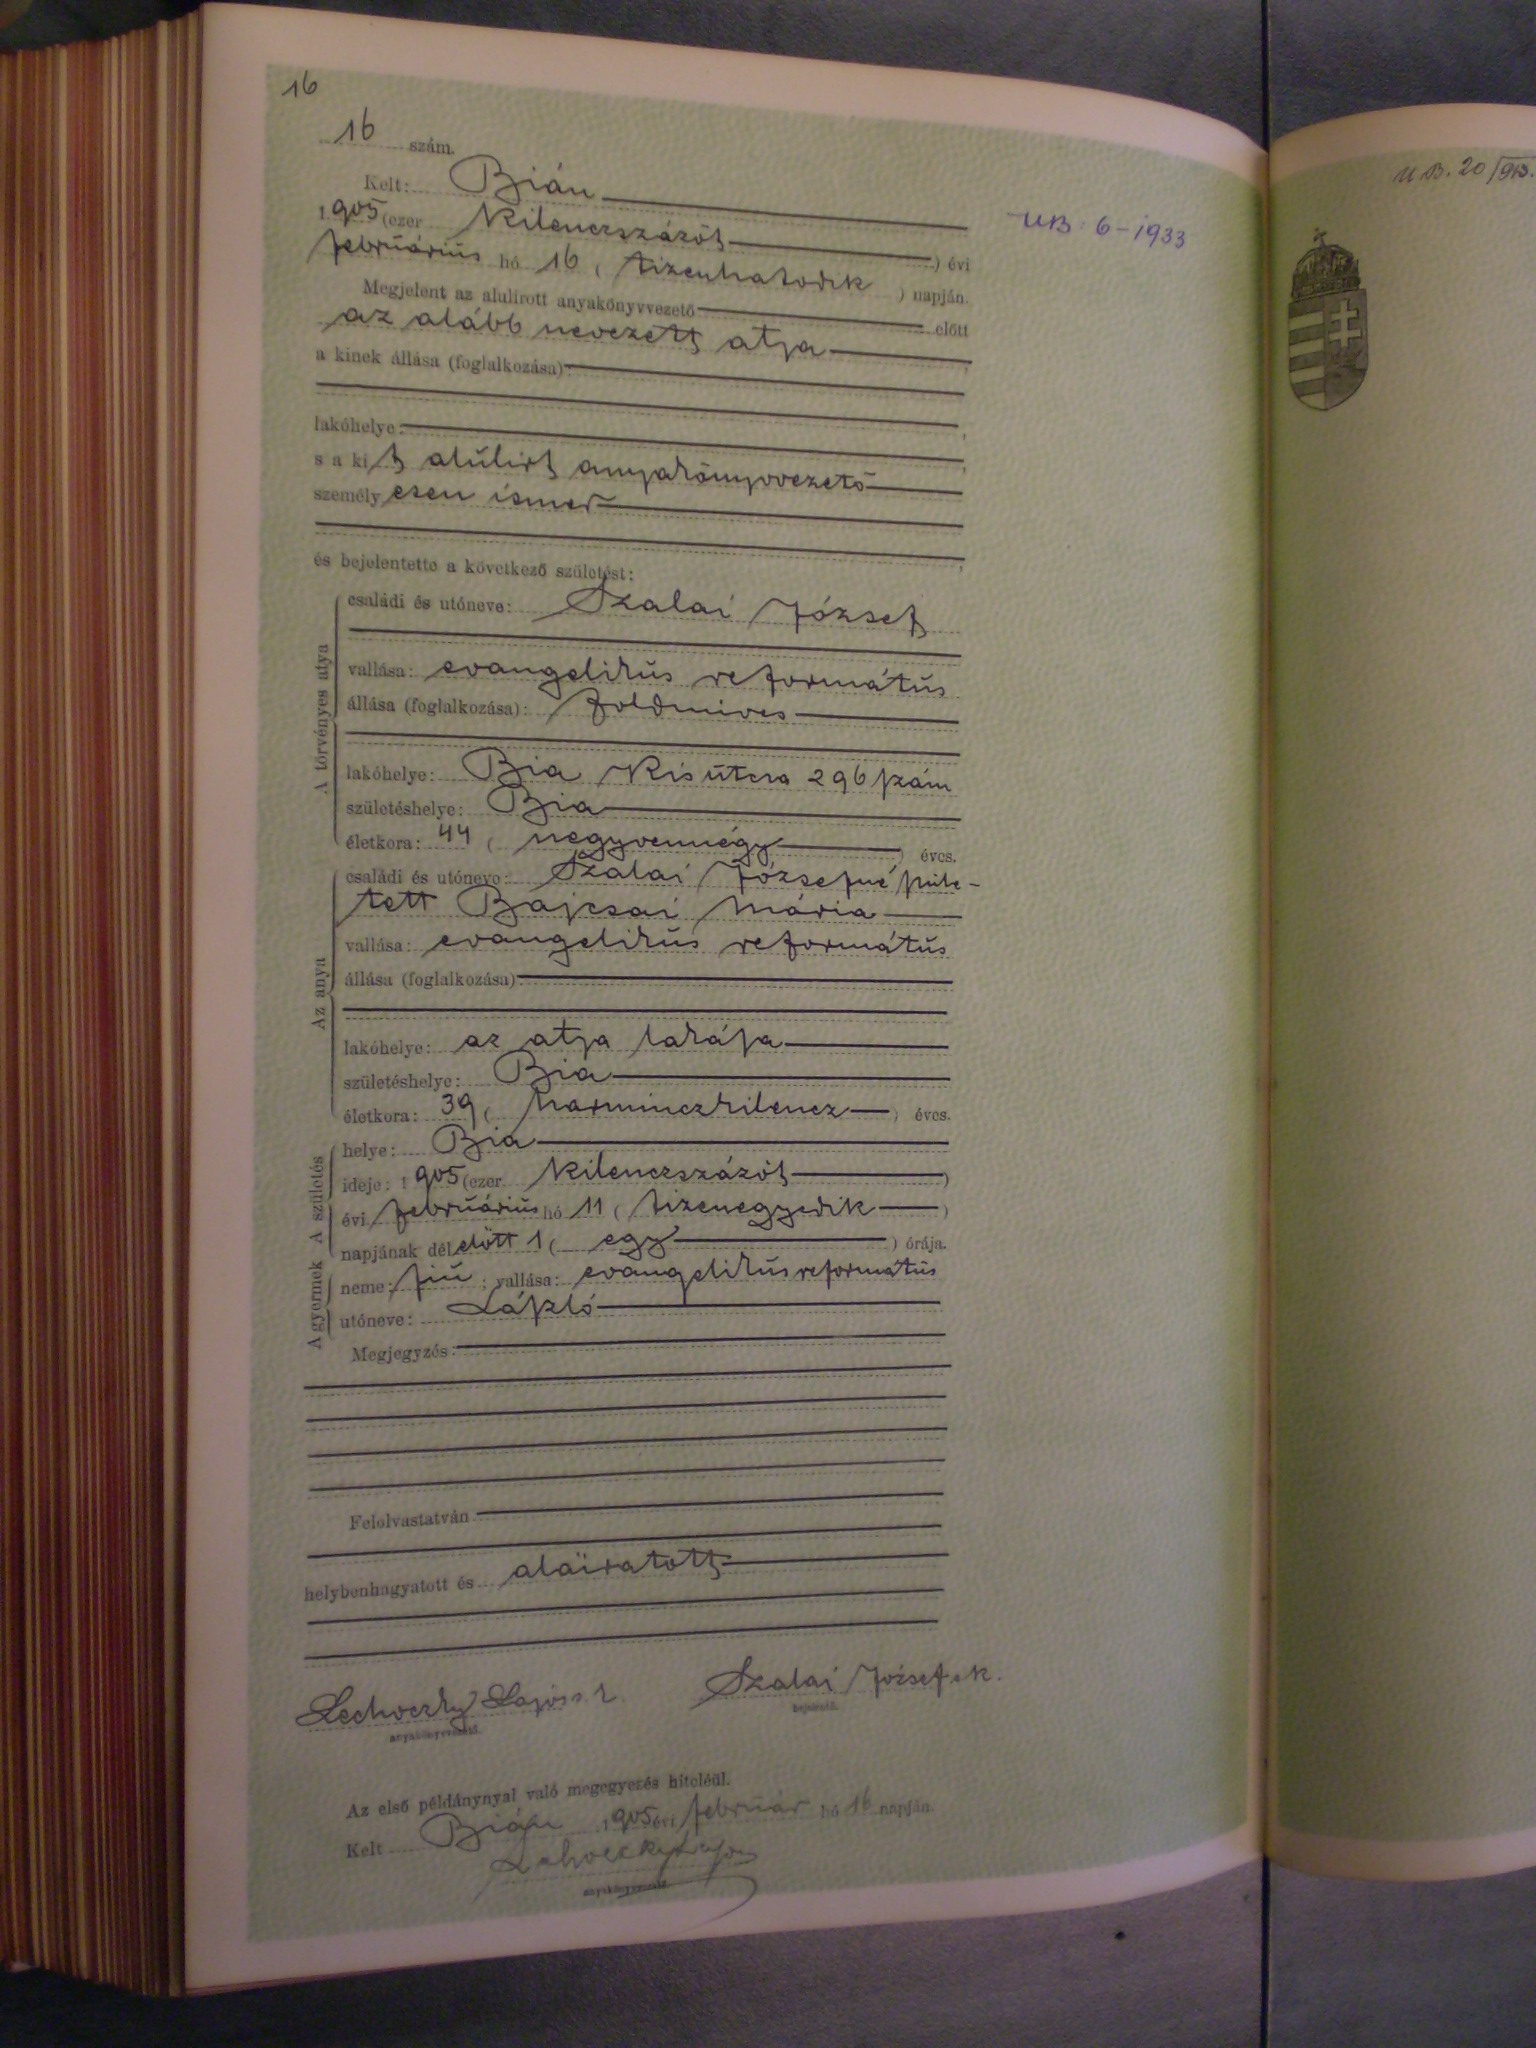 16
16 szám.
Kelt: Bián
U B. 20/913.
1905 (ezer kilenczszázöt) évi
UB: 6-1933
februárius hó 16 (tizenhatodik) napján.
Megjelent az alulirott anyakönyvvezető előtt
az alább nevezett atja
a kinek állása (foglalkozása):
lakóhelye:
s a kit alulirt anyakönyvvezető
személyesen ismer
és bejelentette a következő születést:
A törvényes atya
családi és utóneve: Szalai József
vallása: evangelikus református
állása (foglalkozása): földmives
lakóhelye: Bia Kis utcza 296 szám
születéshelye: Bia
életkora: 44 (negyvennégy) éves.
Az anya
családi és utóneve: Szalai Józsefné szüle-
tett Bajcsai Mária
vallása: evangelikus református
állása (foglalkozása)
lakóhelye: az atja lakása
születéshelye: Bia
életkora: 39 (harminczkilencz) éves.
A születés
helye: Bia
ideje: 1905 (ezer kilenczszázöt)
évi februárius hó 11 (tizenegyedik)
napjának délelőtt 1 (egy) órája.
A gyermek
neme: fiu; vallása: evangelikus református
utóneve: László
Megjegyzés:
Felolvastatván
helybenhagyatott és aláiratott
Lechoczky Lajos s. k. Szalai József s. k.
anyakönyvvezető. bejelentő.
Az első példánynyal való megegyezés hiteléül.
Kelt Bián 1905 évi február hó 16 napján.
Lehoczky Lajos
anyakönyvvezető.